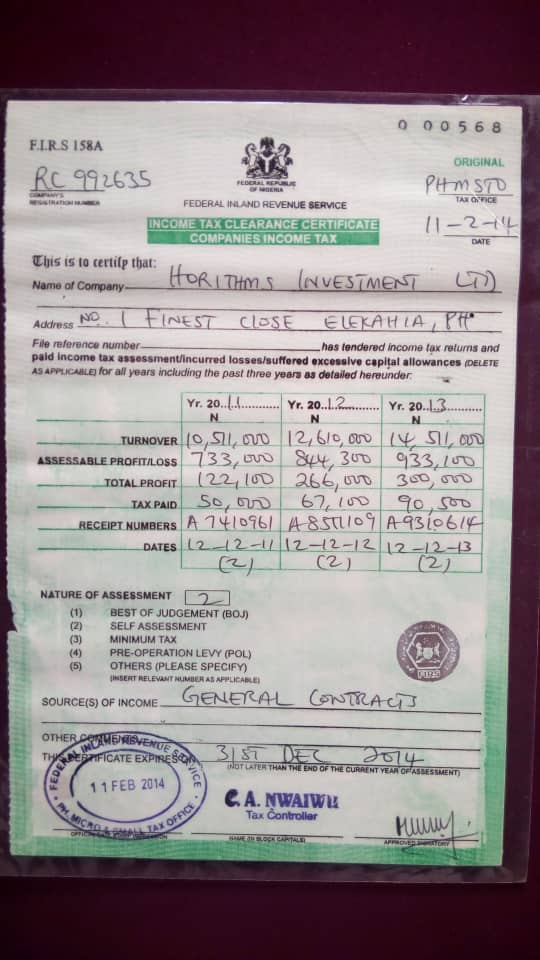 0 000568
F.I.R.S 158A
ORIGINAL
RC 992635
COMPANY'S
REGISTRATION NUMBER
FEDERAL REPUBLIC
OF NIGERIA
PHMSTO
TAX OFFICE
FEDERAL INLAND REVENUE SERVICE
11-2-14
DATE
INCOME TAX CLEARANCE CERTIFICATE
COMPANIES INCOME TAX
This is to certify that:
Name of Company HORITHMS INVESTMENT LTD
Address NO. 1 FINEST CLOSE ELEKAHIA, PH
File reference number has tendered income tax returns and
paid income tax assessment/incurred losses/suffered excessive capital allowances (DELETE
AS APPLICABLE) for all years including the past three years as detailed hereunder:
Yr. 20 11 Yr. 20 12 Yr. 20 13
N N N
TURNOVER 10,511,000 12,610,000 14,511,000
ASSESSABLE PROFIT/LOSS 733,000 844,300 933,100
TOTAL PROFIT 122,100 266,000 300,000
TAX PAID 50,000 67,100 90,500
RECEIPT NUMBERS A7410961 A8511109 A9310614
DATES 12-12-11 12-12-12 12-12-13
(2) (2) (2)
NATURE OF ASSESSMENT 2
(1) BEST OF JUDGEMENT (BOJ)
(2) SELF ASSESSMENT
(3) MINIMUM TAX
(4) PRE-OPERATION LEVY (POL)
(5) OTHERS (PLEASE SPECIFY)
(INSERT RELEVANT NUMBER AS APPLICABLE)
FIRS
SOURCE(S) OF INCOME GENERAL CONTRACTS
OTHER COMMENTS
THIS CERTIFICATE EXPIRES ON 31ST DEC 2014
(NOT LATER THAN THE END OF THE CURRENT YEAR OF ASSESSMENT)
FEDERAL INLAND REVENUE SERVICE
11 FEB 2014
PH. MICRO & SMALL TAX OFFICE
C. A. NWAIWU
Tax Controller
NAME (IN BLOCK CAPITALS)
APPROVED SIGNATORY